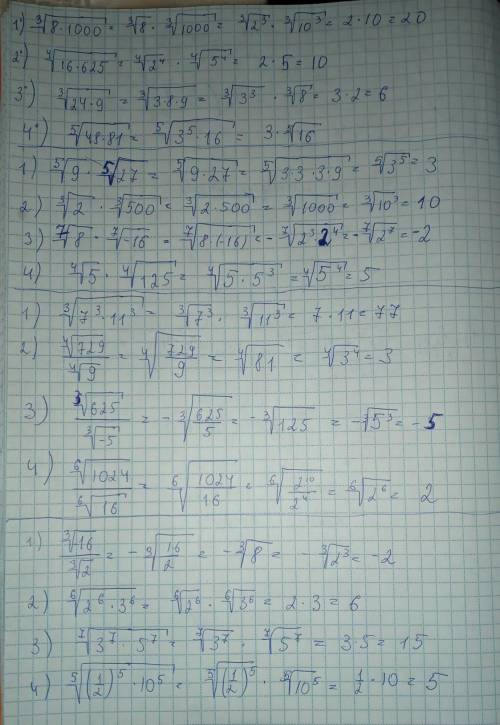 1) ∛(8·1000) = ∛8 · ∛1000 = ∛2³ · ∛10³ = 2·10 = 20
2) ∜(16·625) = ∜2⁴ · ∜5⁴ = 2·5 = 10
3) ∛(24·9) = ∛(3·8·9) = ∛3³ · ∛8 = 3·2 = 6
4) ⁵√(48·81) = ⁵√(3⁵·16) = 3·⁵√16
1) ⁵√9 · ⁵√27 = ⁵√(9·27) = ⁵√(3·3·3·9) = ⁵√3⁵ = 3
2) ∛2 · ∛500 = ∛(2·500) = ∛1000 = ∛10³ = 10
3) ⁷√8 · ⁷√-16 = ⁷√(8·(-16)) = -⁷√(2³·2⁴) = -⁷√2⁷ = -2
4) ∜5 · ∜125 = ∜(5·5³) = ∜5⁴ = 5
1) ∛(7³·11³) = ∛7³ · ∛11³ = 7·11 = 77
2) ∜729/∜9 = ∜(729/9) = ∜81 = ∜3⁴ = 3
3) ∛625/∛-5 = -∛(625/5) = -∛125 = -∛5³ = -5
4) ⁶√1024/⁶√16 = ⁶√(1024/16) = ⁶√(2¹⁰/2⁴) = ⁶√2⁶ = 2
1) ∛-16/∛2 = -∛(16/2) = -∛8 = -∛2³ = -2
2) ⁶√(2⁶·3⁶) = ⁶√2⁶ · ⁶√3⁶ = 2·3 = 6
3) ⁷√(3⁷·5⁷) = ⁷√3⁷ · ⁷√5⁷ = 3·5 = 15
4) ⁵√((1/2)⁵·10⁵) = ⁵√(1/2)⁵ · ⁵√10⁵ = 1/2·10 = 5